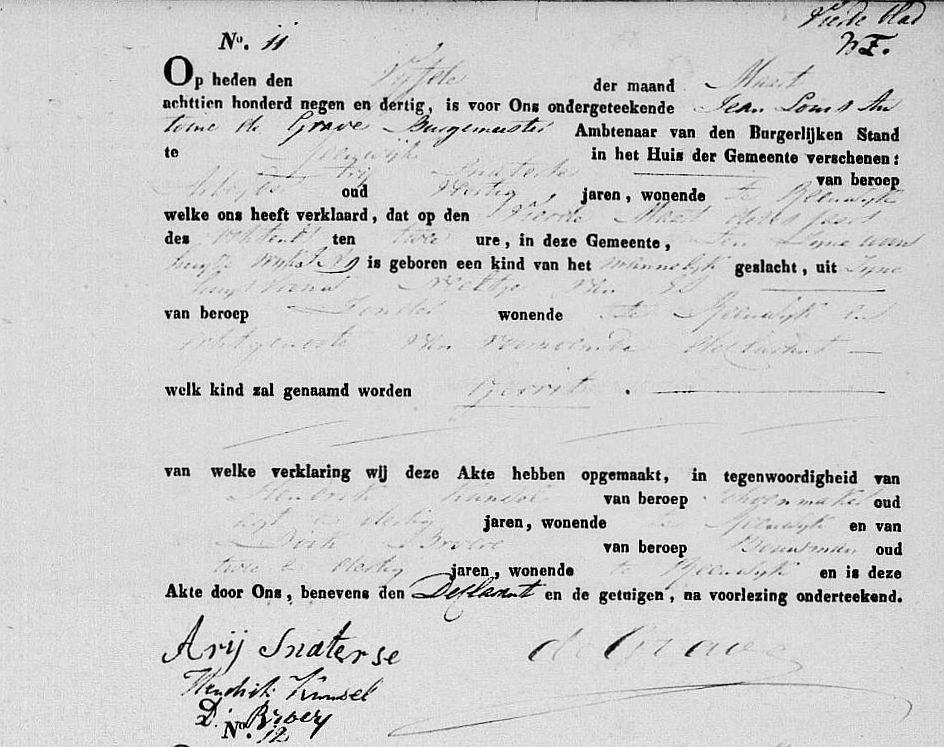 Vierde blad
No. 11
Op heden den Vijfde der maand Maart
achttien honderd negen en dertig, is voor Ons ondergeteekende Jean Louis An
toine de Grave Burgemeester Ambtenaar van den Burgerlijken Stand
te Reeuwijk in het Huis der Gemeente verschenen:
Arij Snaterse van beroep
Arbeyder oud dertig jaren, wonende te Reeuwijk
welke ons heeft verklaard, dat op den Vierde Maart dezes jaars
des ochtends ten twee ure, in deze Gemeente, ten zyne woon
huyze Wijk is geboren een kind van het mannelyk geslacht, uit zyne
huysvrouw Neeltje van
van beroep zonder wonende te Reeuwijk en
echtgenoote van genoemde declarant
welk kind zal genaamd worden Gerrit.
van welke verklaring wij deze Akte hebben opgemaakt, in tegenwoordigheid van
Hendrik Kunsel van beroep Schoenmaker oud
agt en dertig jaren, wonende te Reeuwyk en van
Dirk Broere van beroep Bouwman oud
twee en dertig jaren, wonende te Reeuwyk en is deze
Akte door Ons, benevens den Declarant en de getuigen, na voorlezing onderteekend.
Arij Snaterse de Grave
Hendrik Kunsel
D. Broere
No. 12